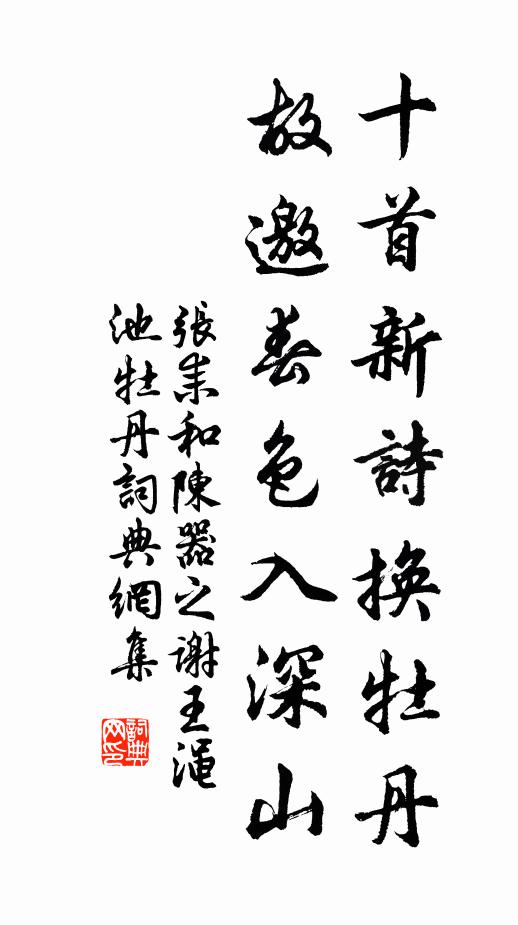 十首新詩換牡丹
故邀春色入深山
張耒和陳器之謝王渑
池牡丹詞典網集
詞典
网印